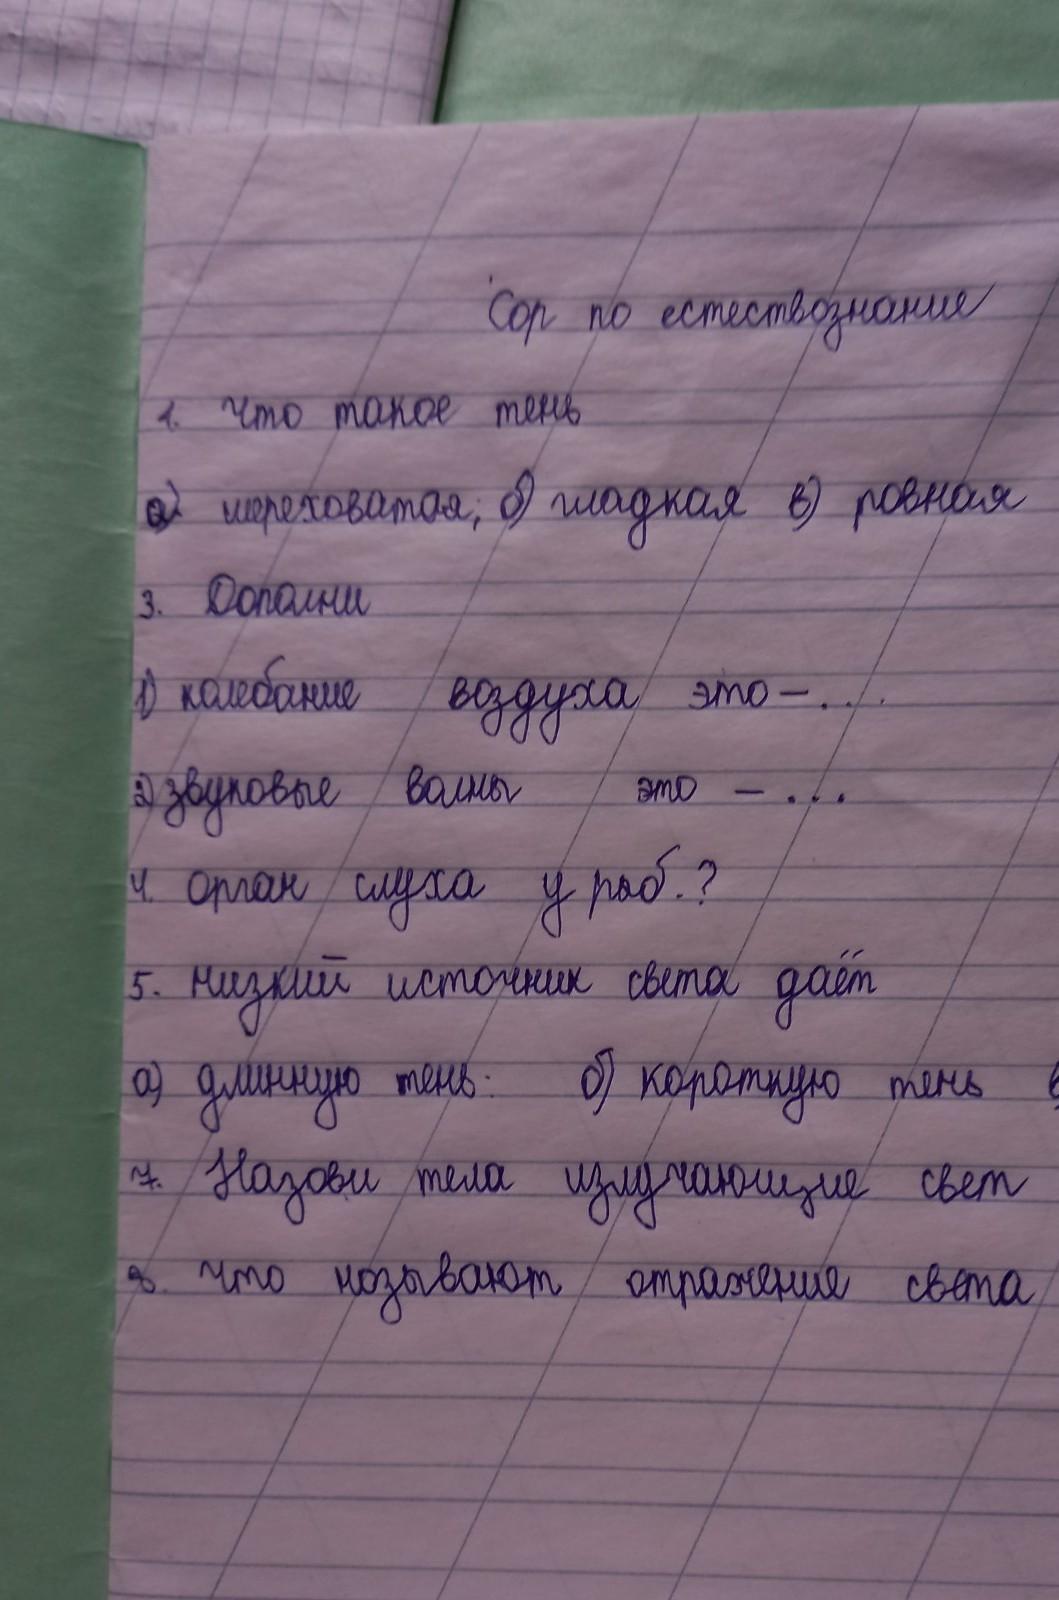 Сор по естествознание
1. что такое тень
а) шереховатая; б) гладкая в) ровная
3. Дополни
1) колебание воздуха это - ....
2) звуковые волны это - ...
4. орган слуха у рыб.?
5. низкий источник света даёт
а) длинную тень. б) короткую тень в
7. Назови тела излучающие свет
8. что называют отражение света